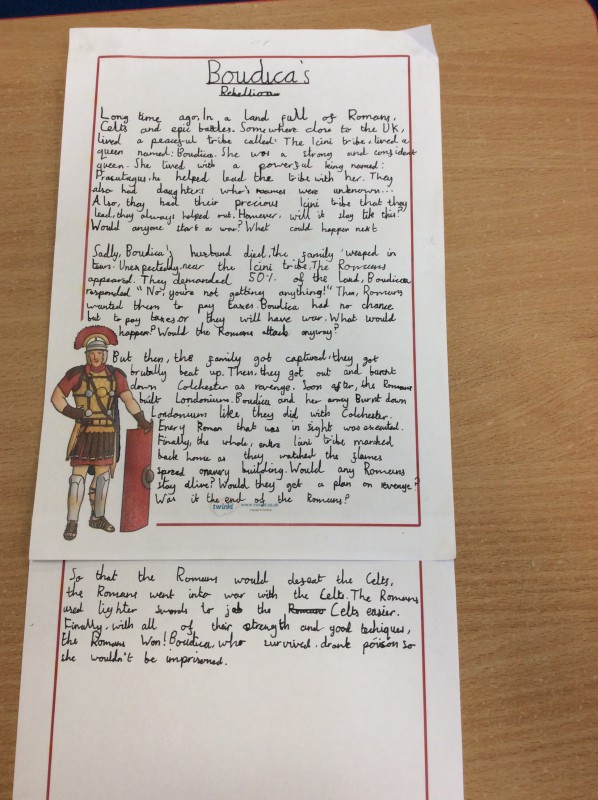 Boudica's
Rebellion
Long time ago, In a land full of Romans,
Celts and epic battles. Somewhere close to the UK,
lived a peaceful tribe called: The Icini tribe, lived a
queen named: Boudica. She was a strong and confident
queen. She lived with a powerful king named:
Prasutagus, he helped lead the tribe with her. They
also had daughters who's names were unknown...
Also, they had their precious Icini tribe that they
lead, they always helped out. However, will it stay like this?
Would anyone start a war? What could happen next
Sadly, Boudica's husband died, the family weeped in
tears. Unexpectedly, near the Icini tribe, The Romans
appeared. They demanded 50% of the land, Boudica
responded "No, youre not getting anything!" Then, Romans
wanted them to pay taxes Boudica had no chance
but to pay taxes or they will have war. What would
happen? Would the Romans attack anyway?
But then, the family got captured, they got
brutally beat up. Then, they got out and burnt
down Colchester as revenge. Soon after, the Romans
built Londonium. Boudica and her army Burnt down
Londonium like, they did with Colchester.
Every Roman that was in sight was executed.
Finally, the whole, entire Icini tribe marched
back home as they watched the flames
spread on every building. Would any Romans
stay alive? Would they get a plan on revenge?
Was it the end of the Romans?
twinkl www.twinkl.co.uk
So that the Romans would defeat the Celts,
the Romans went into war with the Celts. The Romans
used lighter swords to jab the Romans Celts easier.
Finally, with all of their strength and good techiques,
the Romans Won! Boudica, who survived, drank poison so
she wouldn't be imprisoned.